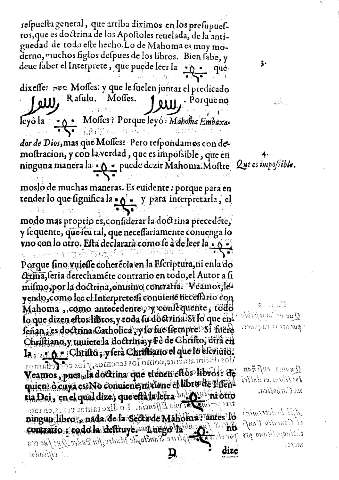 respuesta general, que arriba diximos en los presupues-
tos, que es doctrina de los Apostoles reuelada, de la anti-
guedad de todo este hecho. Lo de Mahoma es muy mo-
derno, muchos siglos despues de los libros. Bien sabe, y
deue saber el Interprete, que puede leer la que
3.
dixesse: Mosses: y que le suelen juntar el predicado
رسول Rasulo. Mosses. رسول Porque no
leyò la Mosses? Porque leyó: Mahoma Embaxa-
dor de Dios, mas que Mosses? Pero respondamos con de-
mostracion, y con la verdad, que es impossible, que en
ninguna manera la puede dezir Mahoma. Mostre
4.
Que es impossible.
moslo de muchas maneras. Es euidente: porque para en
tender lo que significa la y para interpretarla, el
modo mas proprio es, considerar la doctrina precedẽte,
y sequente, que sea tal, que necessariamente conuenga lo
vno con lo otro. Esta declararà como sè à de leer la
Porque sino vuiesse coherẽcia en la Escriptura, ni en la do
ctrina, seria derechamẽte contrario en todo, el Autor a si
mismo, por la doctrina, omnino contraria. Veamos, le-
yendo, como lee el Interprete si conuiene necessario con
Mahoma, como antecedente, y consequente, todo
lo que dizen estos libros, y toda su doctrina. Si lo que en-
señan, es doctrina Catholica, y lo fue siempre: Si fuere
Christiano, y tuuiere la doctrina, y Fè de Christo, dirà en
la Christo, y serà Christiano el que lo escriuio:
Veamos, pues, la doctrina que tienen estos libros: de
quien ò cuya es? No conuiene ni viene el libro de Essen-
tia Dei, en el qual dize, que està la letra ni otro
ningun libro, nada de la Secta de Mahoma: antes lo
contrario: todo la destruye. Luego la no
D dize